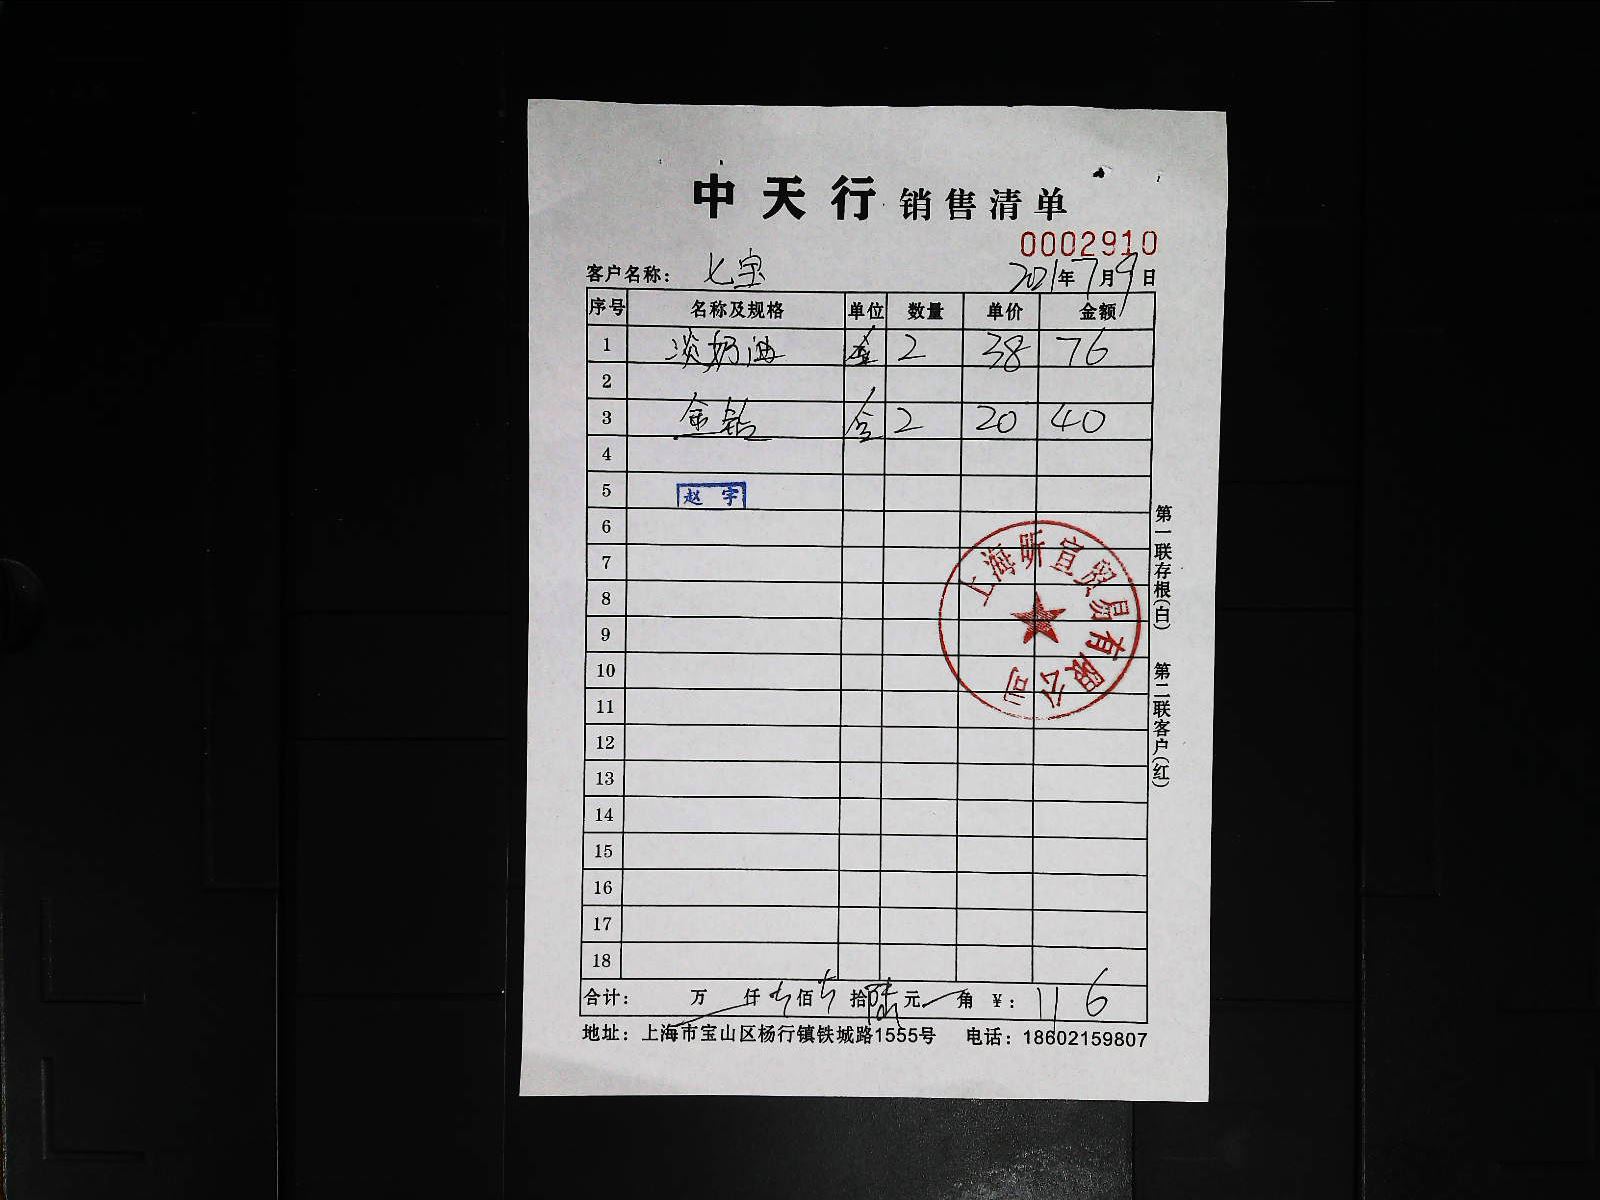 中天行 销售清单
0002910
客户名称： 七宝 2021年7月9日
序号 名称及规格 单位 数量 单价 金额
1 淡奶油 2 38 76
2
3 金钻 合 2 20 40
4
5 赵宇
6
7
8
9
10
11
12
13
14
15
16
17
18
上海昕宜贸易有限公司
第一联存根(白) 第二联客户(红)
合计： 万 仟 佰 拾 陆 元 角 ¥： 116
地址：上海市宝山区杨行镇铁城路1555号 电话：18602159807